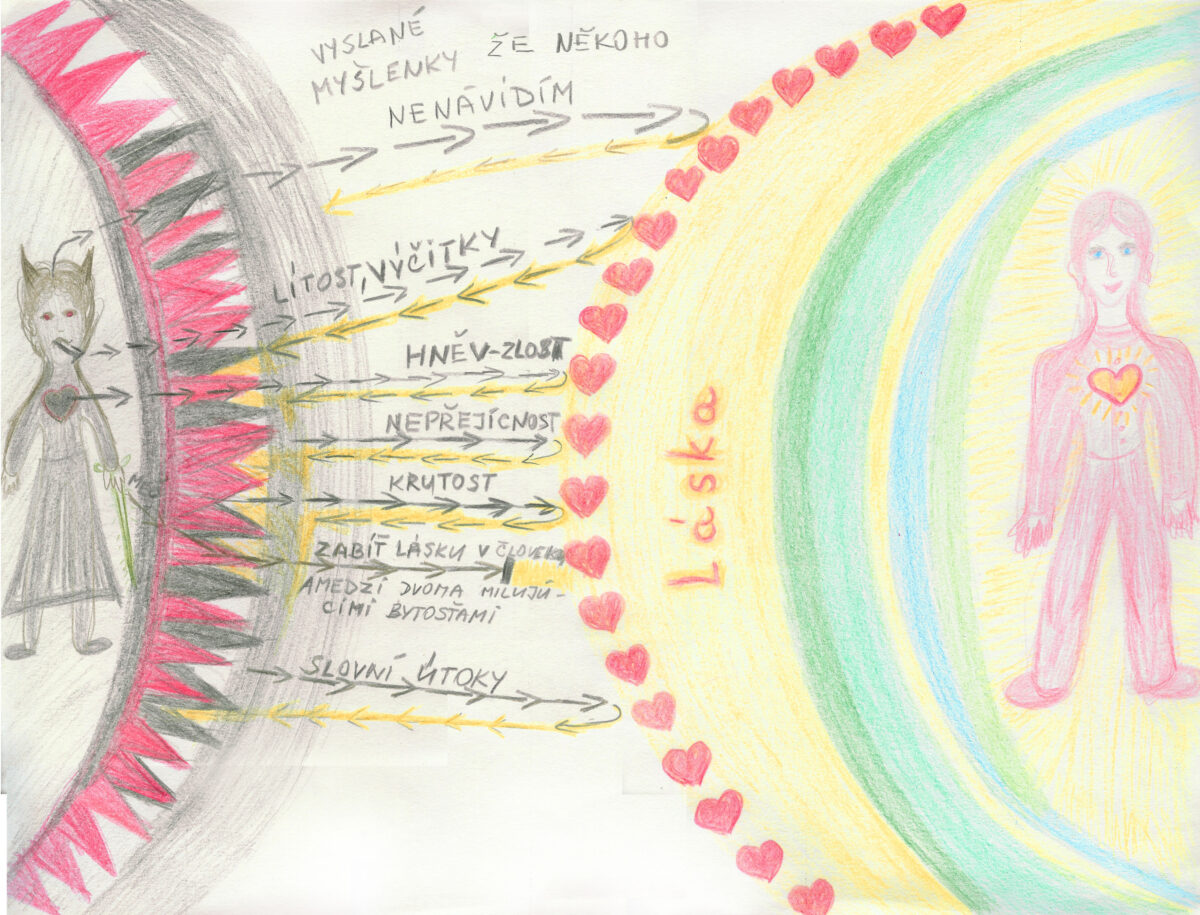 VYSLANÉ
MYŠLENKY ŽE NĚKOHO
NENÁVIDÍM
LÍTOST, VÝČITKY
HNĚV-ZLOST
NEPŘEJÍCNOST
KRUTOST
ZABÍŤ LÁSKU V ČLOVEKU
A MEDZI DVOMA MILUJÚ-
CÍMI BYTOSŤAMI
SLOVNÍ ÚTOKY
Láska